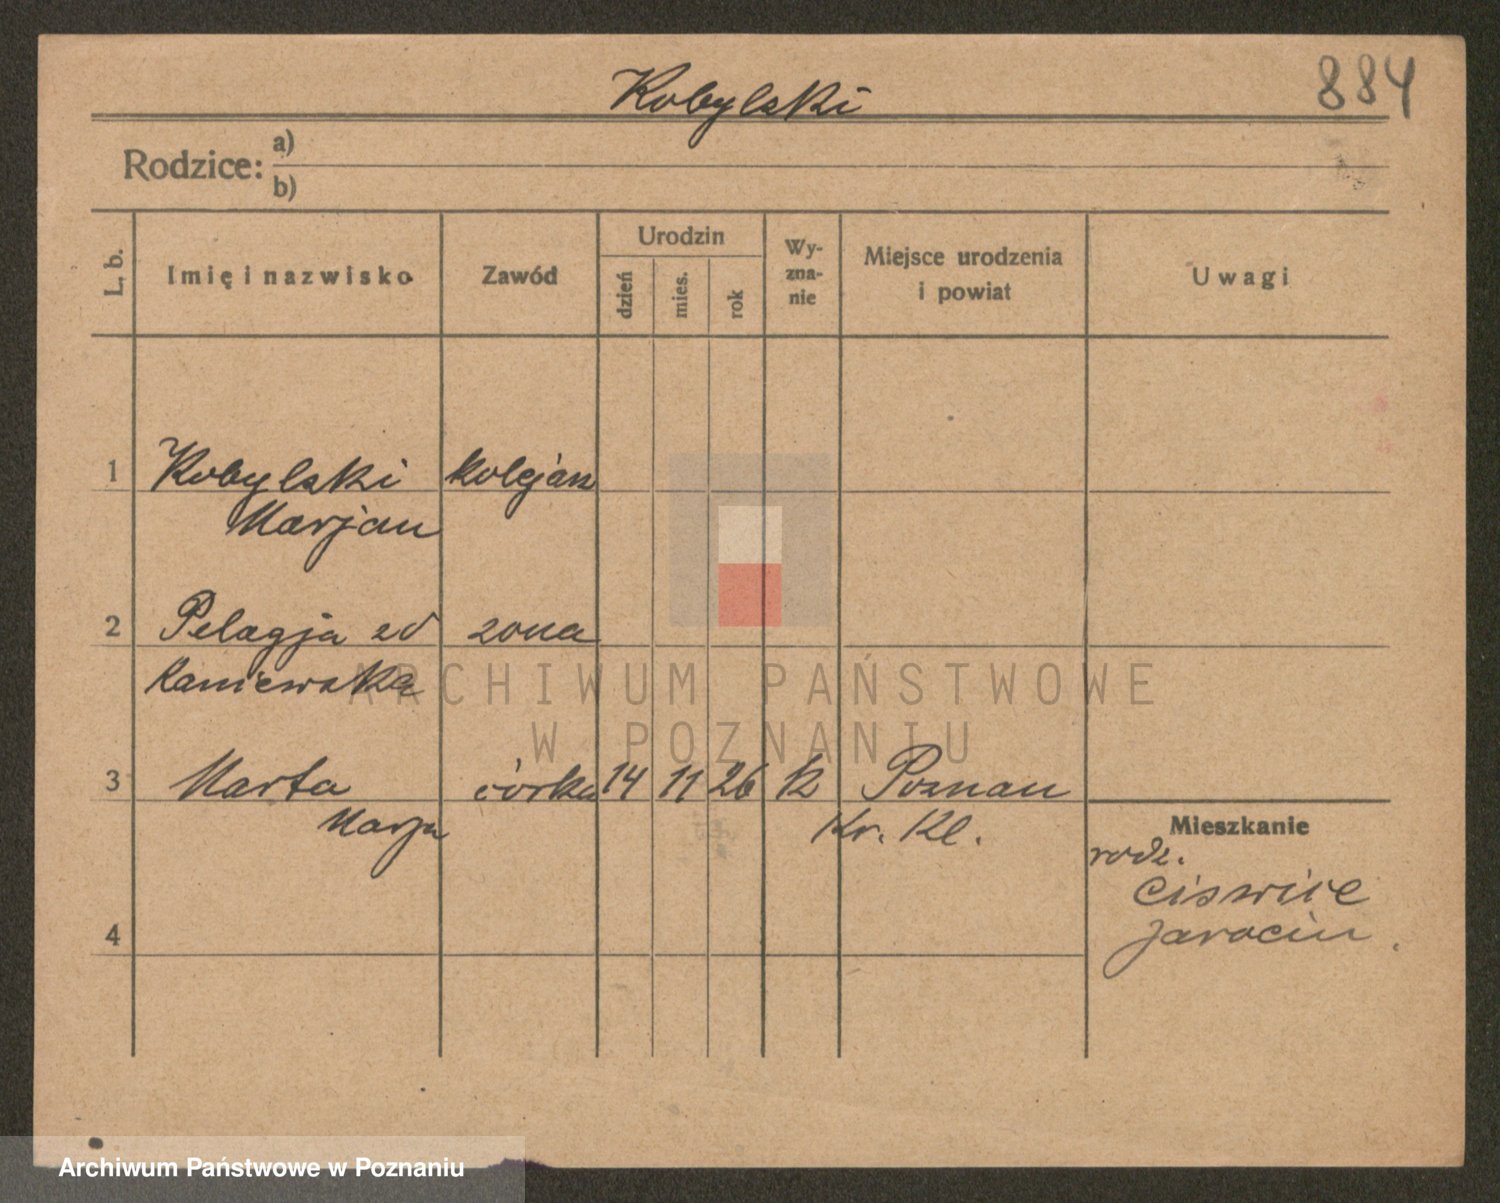 884
Kobylski
Rodzice: a)
b)
L. b.
Imię i nazwisko
Zawód
Urodzin
dzień
mies.
rok
Wy-
zna-
nie
Miejsce urodzenia
i powiat
Uwagi
1 Kobylski kolejarz
Marjan
2 Pelagja zd zona
Kaniewska
3 Marta córka 14 11 26 k Poznan
Marja Kr. Kl.
Mieszkanie
rodz.
Ciswice
Jarocin.
4
ARCHIWUM PAŃSTWOWE
W POZNANIU
Archiwum Państwowe w Poznaniu